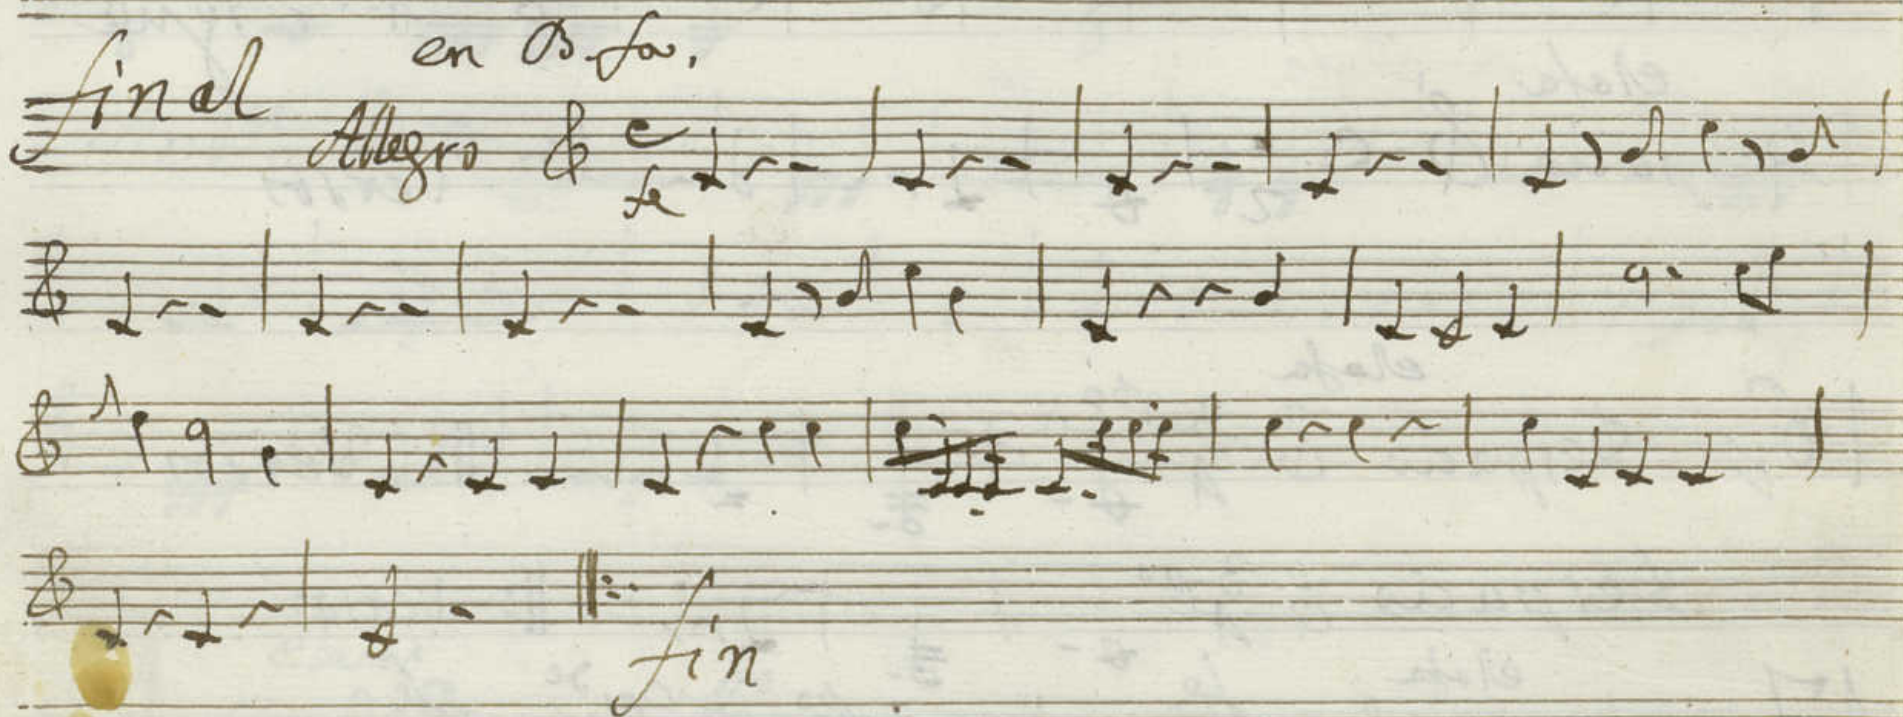 final en B fa.
Allegro
fe
fin